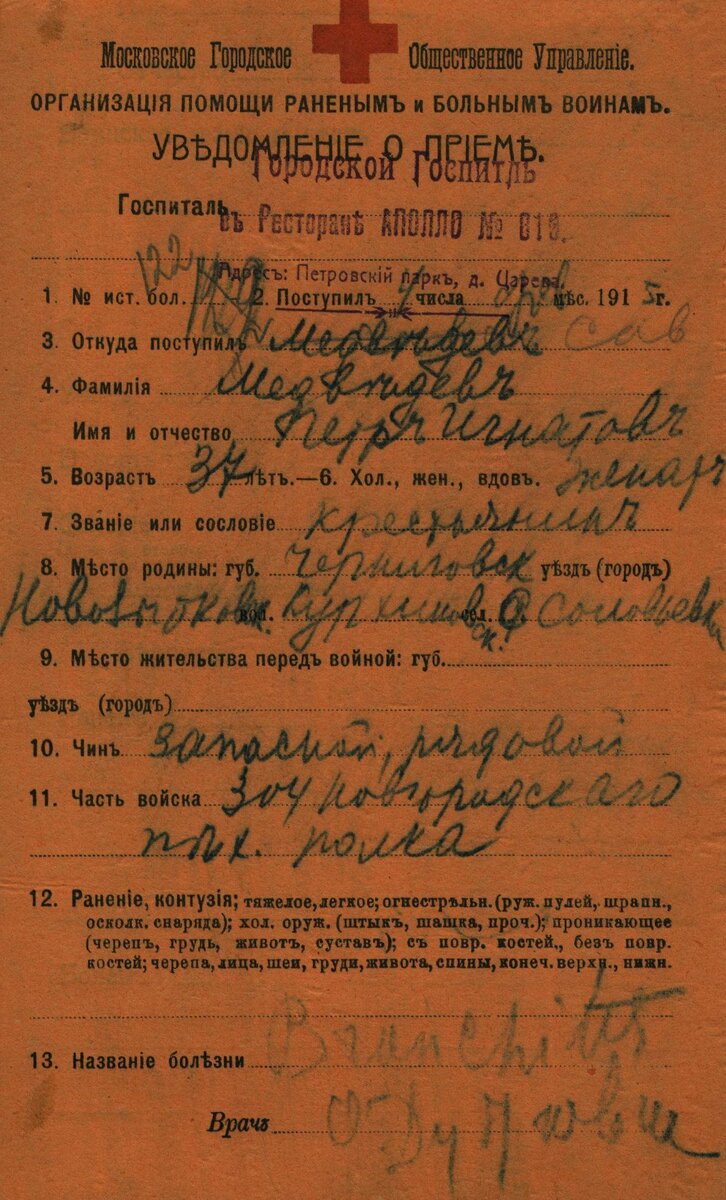 Московское Городское Общественное Управленіе.
ОРГАНИЗАЦІЯ ПОМОЩИ РАНЕНЫМЪ и БОЛЬНЫМЪ ВОИНАМЪ.
УВѢДОМЛЕНІЕ О ПРІЕМѢ.
Городской Госпитль
Госпиталь
въ Ресторанѣ АПОЛЛО №
Адресъ: Петровскій паркъ, д. Царева
122
1. № ист. бол. 2. Поступилъ 4 числа мѣс. 1915 г.
3. Откуда поступилъ Медвѣдевъ
4. Фамилія Медвѣдевъ
Имя и отчество Петръ Игнатовъ
5. Возрастъ 37 лѣтъ.—6. Хол., жен., вдовъ. женатъ
7. Званіе или сословіе крестьянинъ
8. Мѣсто родины: губ. Черниговск уѣздъ (городъ)
Новозыбков. вол. сел. Соловьевка
9. Мѣсто жительства передъ войной: губ.
уѣздъ (городъ)
10. Чинъ запасной, рядовой
11. Часть войска 304 Новгородскаго
пѣх. полка
12. Раненіе, контузія; тяжелое, легкое; огнестрѣльн. (руж. пулей, шрапн.,
осколк. снаряда); хол. оруж. (штыкъ, шашка, проч.); проникающее
(черепъ, грудь, животъ, суставъ); съ повр. костей., безъ повр.
костей; черепа, лица, шеи, груди, живота, спины, конеч. верхн., нижн.
13. Названіе болѣзни Bronchitis
Врачъ